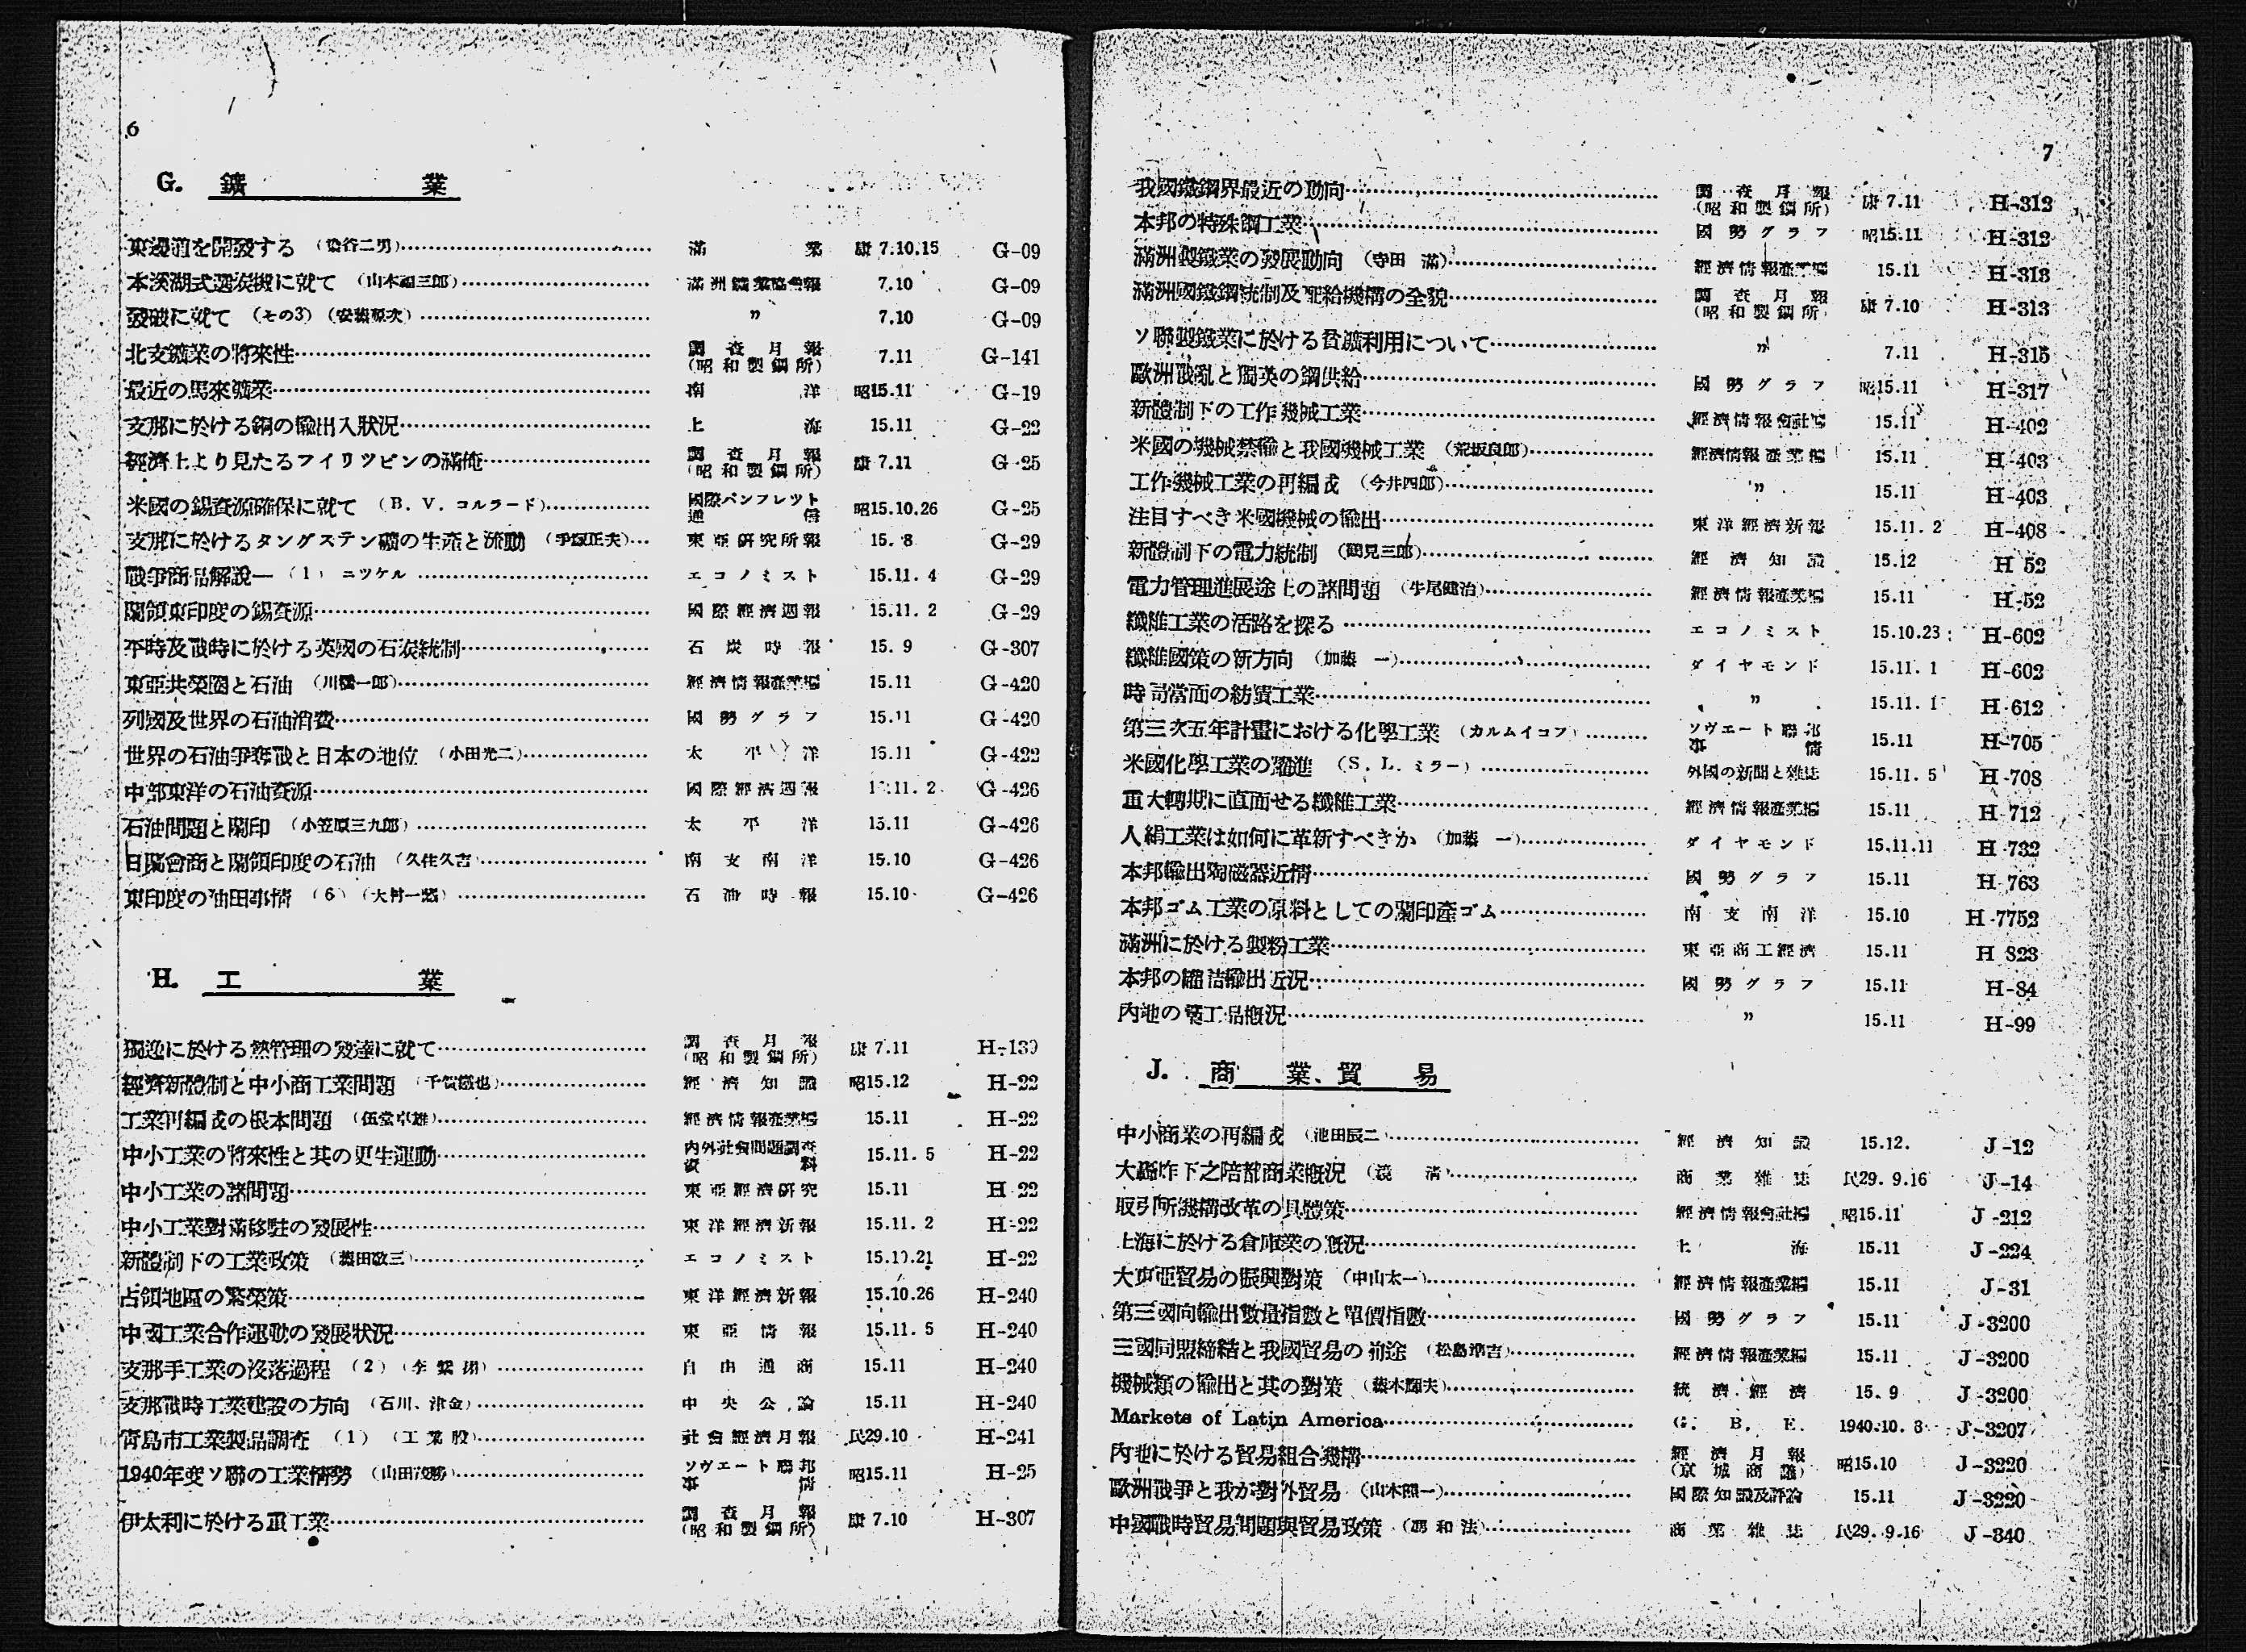 6
G. 鑛業
東邊道を開發する (染谷二男) 滿業 康7.10.15 G-09
本溪湖式選炭機に就て 滿洲鑛業協會報 7.10 G-09
發破に就て (その3) 〃 7.10 G-09
北支鑛業の將來性 調査月報(昭和製鋼所) 7.11 G-141
最近の馬來鑛業 南洋 昭15.11 G-19
支那に於ける銅の輸出入狀況 上海 15.11 G-22
經濟上より見たるフイリツピンの滿俺 調査月報(昭和製鋼所) 康7.11 G-25
米國の錫資源確保に就て (B. V. コルラード) 國際パンフレツト通信 昭15.10.26 G-25
支那に於けるタングステン礦の生產と流動 (手塚正夫) 東亞研究所報 15. 8 G-29
戰爭商品解說— (1) ニツケル エコノミスト 15.11. 4 G-29
蘭領東印度の錫資源 國際經濟週報 15.11. 2 G-29
平時及戰時に於ける英國の石炭統制 石炭時報 15. 9 G-307
東亞共榮圈と石油 經濟情報產業編 15.11 G-420
列國及世界の石油消費 國勢グラフ 15.11 G-420
世界の石油爭奪戰と日本の地位 (小田光二) 太平洋 15.11 G-422
中部東洋の石油資源 國際經濟週報 11. 2 G-426
石油問題と蘭印 (小笠原三九郎) 太平洋 15.11 G-426
日蘭會商と蘭領印度の石油 (久住久吉) 南支南洋 15.10 G-426
東印度の油田事情 (6) 石油時報 15.10 G-426
H. 工業
獨逸に於ける熱管理の發達に就て 調査月報(昭和製鋼所) 康7.11 H-139
經濟新體制と中小商工業問題 經濟知識 昭15.12 H-22
工業再編成の根本問題 (伍堂卓雄) 經濟情報產業編 15.11 H-22
中小工業の將來性と其の更生運動 內外社會問題調査資料 15.11. 5 H-22
中小工業の諸問題 東亞經濟研究 15.11 H-22
中小工業對滿移駐の發展性 東洋經濟新報 15.11. 2 H-22
新體制下の工業政策 (藤田敬三) エコノミスト 15.10.21 H-22
占領地區の繁榮策 東洋經濟新報 15.10.26 H-240
中國工業合作運動の發展狀況 東亞情報 15.11. 5 H-240
支那手工業の沒落過程 (2) 自由通商 15.11 H-240
支那戰時工業建設の方向 (石川、津金) 中央公論 15.11 H-240
靑島市工業製品調査 (1) (工業股) 社會經濟月報 民29.10 H-241
1940年度ソ聯の工業情勢 (山田茂勝) ソヴエート聯邦事情 昭15.11 H-25
伊太利に於ける重工業 調査月報(昭和製鋼所) 康7.10 H-307
7
我國鐵鋼界最近の動向 調査月報(昭和製鋼所) 康7.11 H-312
本邦の特殊鋼工業 國勢グラフ 昭15.11 H-312
滿洲製鐵業の發展動向 (寺田 滿) 經濟情報產業編 15.11 H-313
滿洲國鐵鋼統制及配給機構の全貌 調査月報(昭和製鋼所) 康7.10 H-313
ソ聯製鐵業に於ける貧鑛利用について 〃 7.11 H-315
歐洲戰亂と獨英の鋼供給 國勢グラフ 昭15.11 H-317
新體制下の工作機械工業 經濟情報會社編 15.11 H-402
米國の機械禁輸と我國機械工業 (荒坂良郎) 經濟情報產業編 15.11 H-403
工作機械工業の再編成 (今井四郎) 〃 15.11 H-403
注目すべき米國機械の輸出 東洋經濟新報 15.11. 2 H-408
新體制下の電力統制 (鶴見三郎) 經濟知識 15.12 H 52
電力管理進展途上の諸問題 (牛尾健治) 經濟情報產業編 15.11 H-52
纖維工業の活路を探る エコノミスト 15.10.23 H-602
纖維國策の新方向 (加藤 一) ダイヤモンド 15.11. 1 H-602
時局當面の紡績工業 〃 15.11. 1 H-612
第三次五年計畫における化學工業 (カルムイコフ) ソヴエート聯邦事情 15.11 H-705
米國化學工業の躍進 (S. L. ミラー) 外國の新聞と雜誌 15.11. 5 H-708
重大轉期に直面せる纖維工業 經濟情報產業編 15.11 H-712
人絹工業は如何に革新すべきか (加藤 一) ダイヤモンド 15.11.11 H-732
本邦輸出陶磁器近情 國勢グラフ 15.11 H-763
本邦ゴム工業の原料としての蘭印產ゴム 南支南洋 15.10 H-7752
滿洲に於ける製粉工業 東亞商工經濟 15.11 H 823
本邦の罐詰輸出近況 國勢グラフ 15.11 H-84
內地の藁工品槪況 〃 15.11 H-99
J. 商業、貿易
中小商業の再編成 (池田辰二) 經濟知識 15.12. J-12
大轟炸下之陪都商業槪況 商業雜誌 民29. 9.16 J-14
取引所機構改革の具體策 經濟情報會社編 昭15.11 J-212
上海に於ける倉庫業の槪況 上海 15.11 J-224
大東亞貿易の振興對策 (中山太一) 經濟情報產業編 15.11 J-31
第三國向輸出數量指數と單價指數 國勢グラフ 15.11 J-3200
三國同盟締結と我國貿易の前途 (松島準吉) 經濟情報產業編 15.11 J-3200
機械類の輸出と其の對策 統濟經濟 15. 9 J-3200
Markets of Latin America G. B. E. 1940.10. 8 J-3207
內地に於ける貿易組合機構 經濟月報(京城商議) 昭15.10 J-3220
歐洲戰爭と我が對外貿易 國際知識及評論 15.11 J-3220
中國戰時貿易問題與貿易政策 (馮和法) 商業雜誌 民29. 9.16 J-340